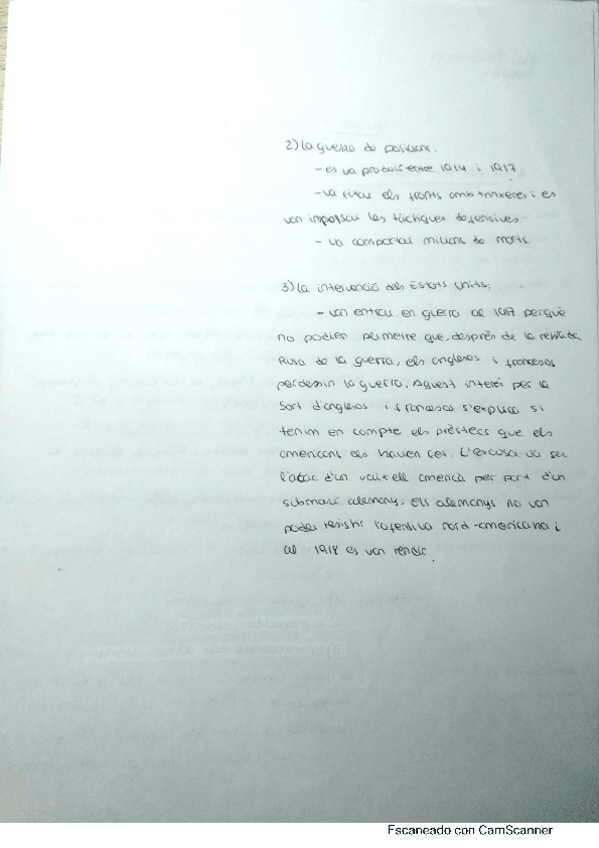 2) La guerra de posicions.
- es va produir entre 1914 i 1917
- va fixar els fronts amb trinxeres i es
van impossar les tàctiques defensives.
- va comportar milions de morts.
3) La intervenció dels Estats Units:
- van entrar en guerra al 1917 perquè
no podien permetre que, després de la retirada
Rusa de la guerra, els anglesos i francesos
perdessin la guerra. Aquest interès per la
sort d'anglesos i francesos s'explica si
tenim en compte els prèstecs que els
americans els havien fet. L'excusa va ser
l'atac d'un vaixell americà per part d'un
submarí alemany. Els alemanys no van
poder resistir l'ofensiva nord-americana i
al 1918 es van rendir.
Escaneado con CamScanner